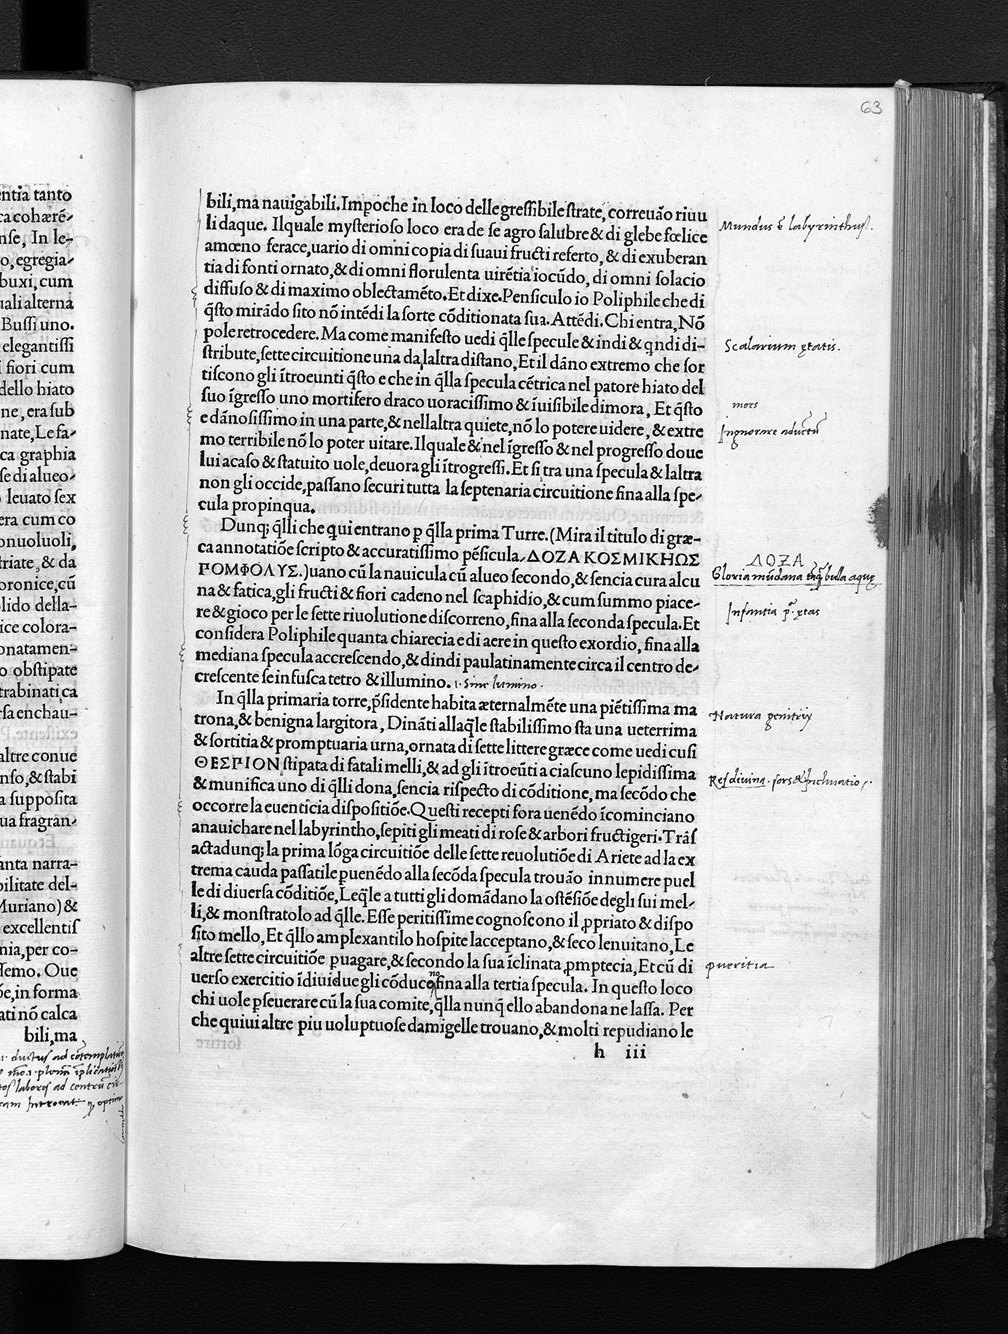 entia tanto
ca cohærẽ-
nse, In le-
o, egregia-
buxi, cum
uali alterna
Bussi uno.
elegantissi
i fiori cum
dello hiato
ne, era sub
nate, Le fa-
ca graphia
se di alueo-
leuato sex
era cum co
onuoluoli,
triate, & da
oronice, cũ
lido della-
ice colora-
onatamen-
o obstipate
trabinati ça
rsa enchau-
altre conue
nso, & stabi
a supposita
ua fragran-
anta narra-
bilitate del-
Muriano) &
excellentis
nia, per co-
ssemo. Oue
õe, in forma
ati nõ calca
bili, ma
63
bili, ma nauigabili. Impoche in loco delle gressibile strate, correuão riuu
li daque. Ilquale mysterioso loco era de se agro salubre & di glebe fœlice
amœno ferace, uario di omni copia di suaui fructi referto, & di exuberan
tia di fonti ornato, & di omni florulenta uirẽtia iocũdo, di omni solacio
diffuso & di maximo oblectamẽto. Et dixe. Pensiculo io Poliphile che di
q̃sto mirãdo sito nõ intẽdi la sorte cõditionata sua. Attẽdi. Chi entra, Nõ
pole retrocedere. Ma come manifesto uedi q̃lle specule & indi & q̃ndi di-
stribute, sette circuitione una da laltra distano, Et il dãno extremo che sor
tiscono gli ĩtroeunti q̃sto e che in q̃lla specula cẽtrica nel patore hiato del
suo ĩgresso uno mortifero draco uoracissimo & ĩuisibile dimora, Et q̃sto
e dãnosissimo in una parte, & nellaltra quiete, nõ lo potere uidere, & extre
mo terribile nõ lo poter uitare. Ilquale & nel ĩgresso & nel progresso doue
lui acaso & statuito uole, deuora gli ĩtrogressi. Et si tra una specula & laltra
non gli occide, passano securi tutta la septenaria circuitione fina alla spe-
cula propinqua.
Dunq; q̃lli che qui entrano p̱ q̃lla prima Turre. (Mira il titulo di græ-
ca annotatiõe scripto & accuratissimo pẽsicula. ΔΟΖΑ ΚΟΣΜΙΚΗ ΩΣ
ΓΟΜΦΟΛΥΣ.) uano cũ la nauicula cũ alueo secondo, & sencia cura alcu
na & fatica, gli fructi & fiori cadeno nel scaphidio, & cum summo piace-
re & gioco per le sette riuolutione discorreno, fina alla seconda specula. Et
considera Poliphile quanta chiarecia e di aere in questo exordio, fina alla
mediana specula accrescendo, & dindi paulatinamente circa il centro de-
crescente se infusca tetro & illumino. i. sine lumino.
In q̃lla primaria torre, p̃sidente habita æternalmẽte una piẽtissima ma
trona, & benigna largitora, Dinãti allaq̃le stabilissimo sta una ueterrima
& sortitia & promptuaria urna, ornata di sette littere græce come uedi cusi
ΘΕΣΓΙΟΝ stipata di fatali melli, & ad gli ĩtroeũti a ciascuno lepidissima
& munifica uno di q̃lli dona, sencia rispecto di cõditione, ma secõdo che
occorre la euenticia dispositiõe. Questi recepti fora uenẽdo ĩcominciano
a nauichare nel labyrintho, sepiti gli meati di rose & arbori fructigeri. Trãs
acta dunq; la prima lõga circuitiõe delle sette reuolutiõe di Ariete ad la ex
trema cauda passatile p̱uenẽdo alla secõda specula trouão innumere puel
le di diuersa cõditiõe, Leq̃le a tutti gli domãdano la ostẽsiõe degli sui mel-
li, & monstratolo ad q̃lle. Esse peritissime cognoscono il ꝓpriato & dispo
sito mello, Et q̃llo amplexantilo hospite lacceptano, & seco lenuitano, Le
altre sette circuitiõe p̱uagare, & secondo la sua ĩclinata ꝓmptecia, Et cũ di
uerso exercitio ĩdiuidue gli cõduceno fina alla tertia specula. In questo loco
chi uole p̱seuerare cũ la sua comite, q̃lla nunq̃ ello abandona ne lassa. Per
che quiui altre piu uoluptuose damigelle trouano, & molti repudiano le
h iii
Mundus ẽ labyrinthus.
Scalarium ętatis.
mors
Ingnorare
ΔΟΖΑ
Gloria mũdana bulla aquę
Infantia p.ª ętas
Natura genitrix
Res diuina. sors & Inclinatio.
pueritia